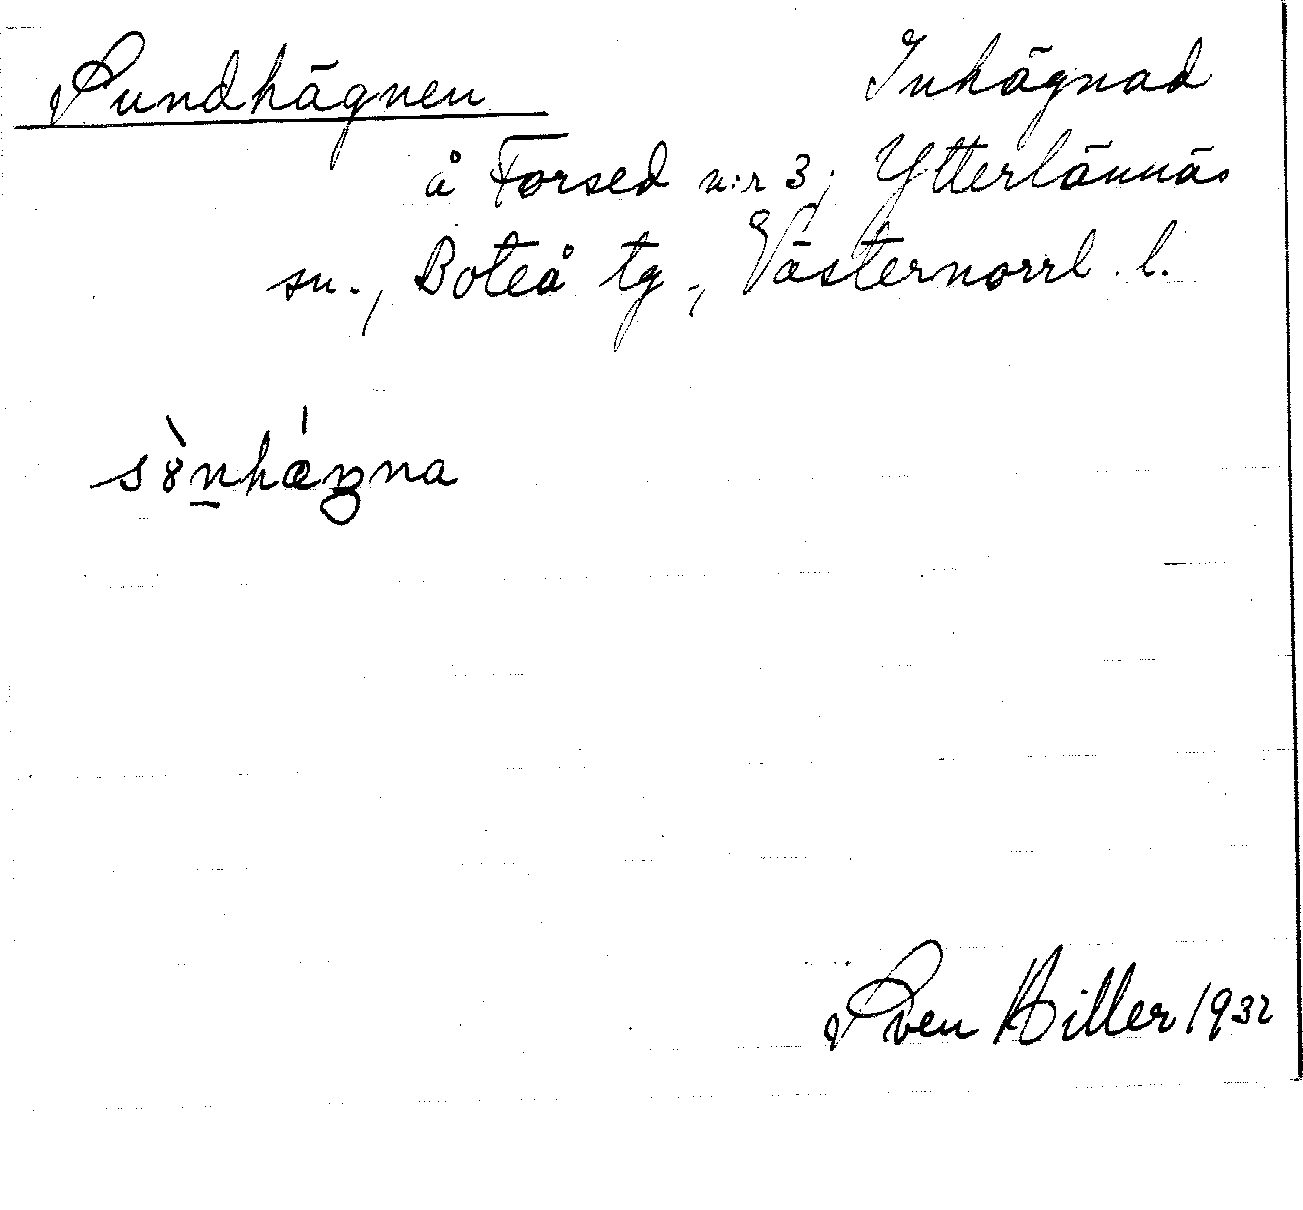 Sundhägnen Inhägnad
å Forsed n:r 3, Ytterlännäs
sn., Boteå tg., Västernorrl. l.
sònhǽŋna
Sven Hiller 1932